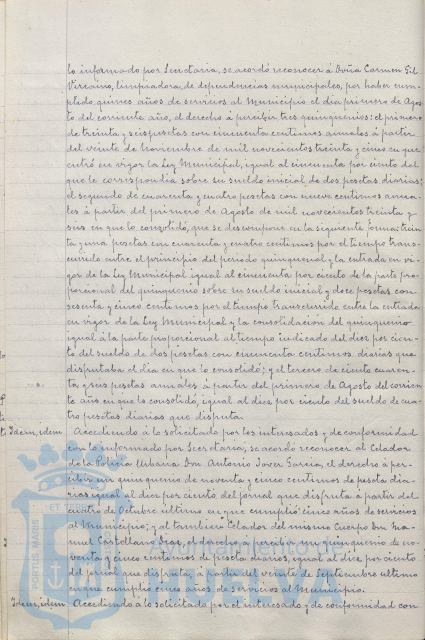 lo informado por Secretaría, se acordó reconocer á Doña Carmen Gil
Vizcaino, limpiadora de dependencias municipales, por haber cum-
plido quince años de servicios al Municipio el día primero de Agos-
to del corriente año, el derecho á percibir tres quinquenios: el primero
de treinta y seis pesetas con cincuenta centimos anuales á partir
del veinte de Noviembre de mil novecientos treinta y cinco en que
entró en vigor la Ley Municipal, igual al cincuenta por ciento del
que le correspondia sobre su sueldo inicial de dos pesetas diarias;
el segundo de cuarenta y cuatro pesetas con nueve centimos anua-
les á partir del primero de Agosto de mil novecientos treinta y
seis en que lo consolidó, que se descompone en la siguiente forma: trein-
ta y una pesetas con cuarenta y cuatro centimos por el tiempo trans-
currido entre el principio del periodo quinquenal y la entrada en vi-
gor de la Ley Municipal igual al cincuenta por ciento de la parte pro-
porcional del quinquenio sobre su sueldo inicial y doce pesetas con
sesenta y cinco centimos por el tiempo transcurrido entre la entrada
en vigor de la Ley Municipal y la consolidación del quinquenio
igual á la parte proporcional al tiempo indicado del diez por cien-
to del sueldo de dos pesetas con cincuenta centimos diarias que
disfrutaba el día en que lo consolidó; y el tercero de ciento cuaren-
ta y seis pesetas anuales á partir del primero de Agosto del corrien-
te año en que lo consolidó, igual al diez por ciento del sueldo de cua-
tro pesetas diarias que disfruta.
Idem, idem. Accediendo á lo solicitado por los interesados y de conformidad
con lo informado por Secretaría, se acordó reconocer al Celador
de la Policía Urbana Don Antonio Jover Garcia, el derecho á per-
cibir un quinquenio de noventa y cinco centimos de peseta dia-
rias igual al diez por ciento del jornal que disfruta á partir del
cuatro de Octubre ultimo en que cumplió cinco años de servicios
al Municipio; y al tambien Celador del mismo Cuerpo Don Ma-
nuel Castellano Dese, el derecho, á percibir un quinquenio de no-
venta y cinco centimos de peseta diarios, igual al diez por ciento
del jornal que disfruta, á partir del veinte de Septiembre ultimo
en que cumplió cinco años de servicios al Municipio.
Idem, idem. Accediendo á lo solicitado por el interesado y de conformidad con
PORTUS MAGIS
ET